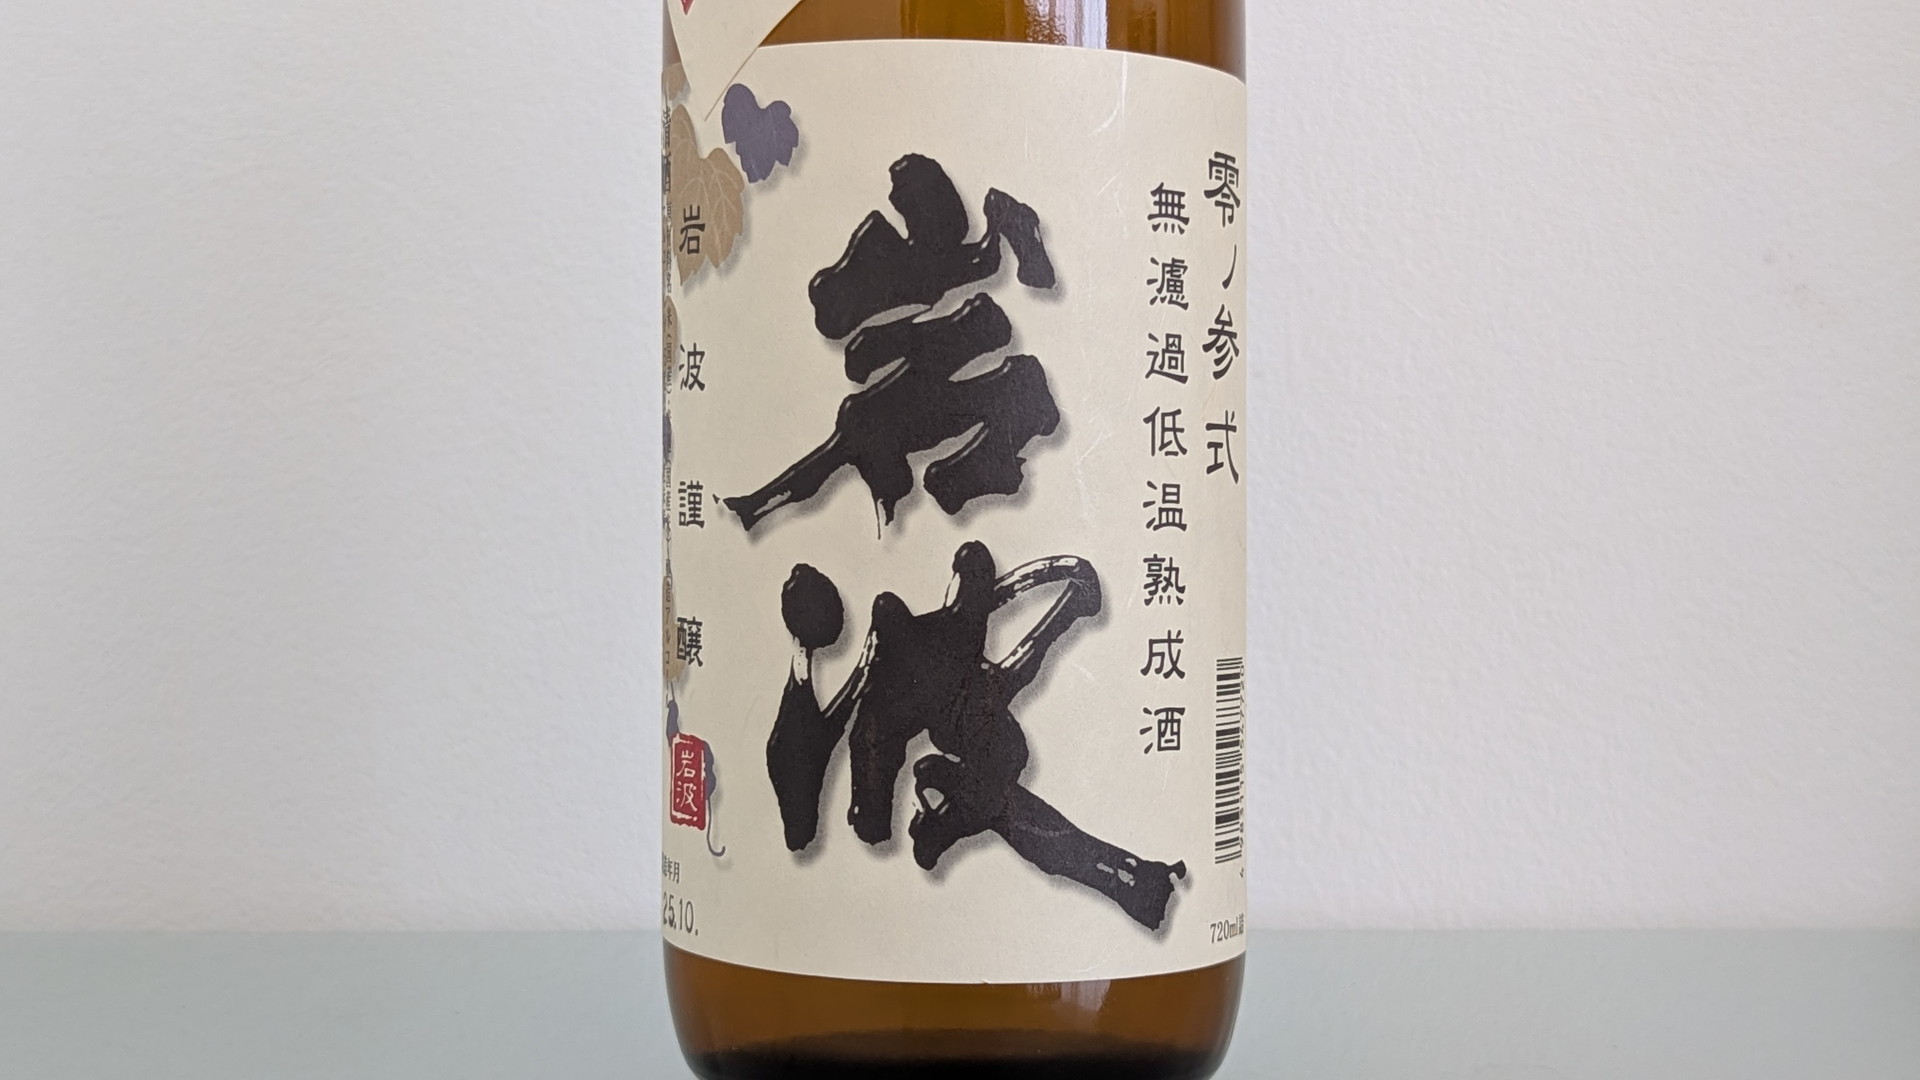 零ノ参式
無濾過低温熟成酒
岩波
岩波謹醸
岩波
清酒
年月
25.10.
720ml詰